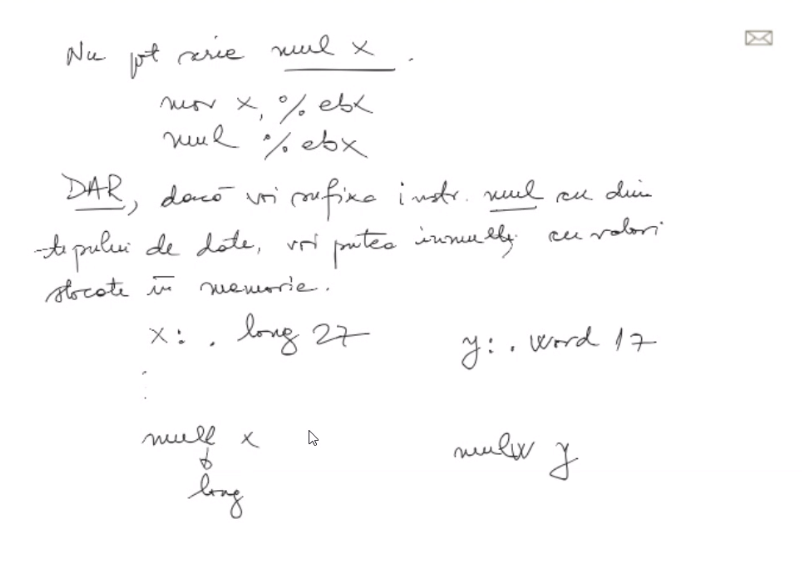 Nu pot scrie mul x .
mov x, % ebx
mul % ebx
DAR, dacă voi sufixa instr. mul cu dim
tipului de date, voi putea înmulți cu valori
stocate în memorie.
x: . long 27 y: . word 17
:
mull x mulw y
long